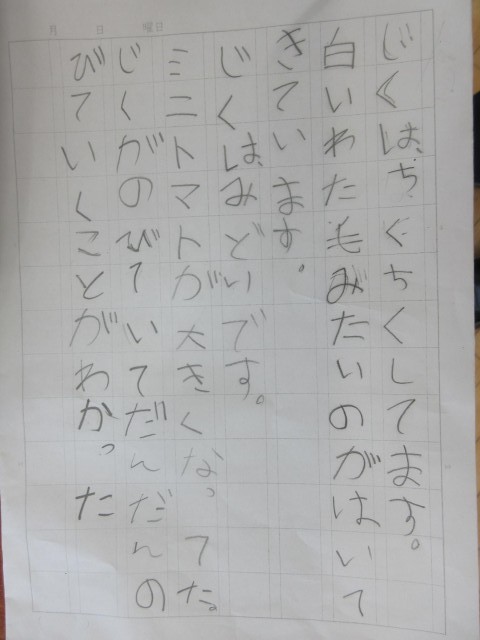 月 日 曜日
じくは、ちぐちくしてます。
白いわた毛みたいのがはいて
きています。
じくは、みどいです。
ミニトマトが大きくなってた。
じくがのびていてだんだんの
びていくことがわかった